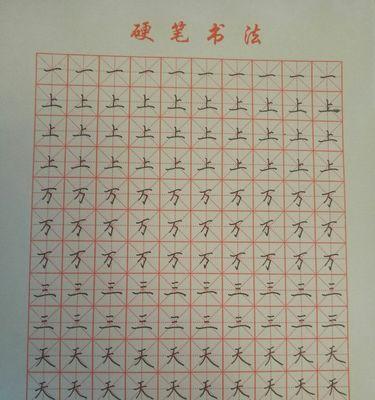 硬笔书法
一一一一一一一一一一
上上上上上上上上上上
上上上上上上上上上上
上上上上上上上上上上
万万万万万万万万万万
万万万万万万万万万万
万万万万万万万万万万
三三三三三三三三三三
三三三三三三三三三三
天天天天天天天天天天
天天天天天天天天天天